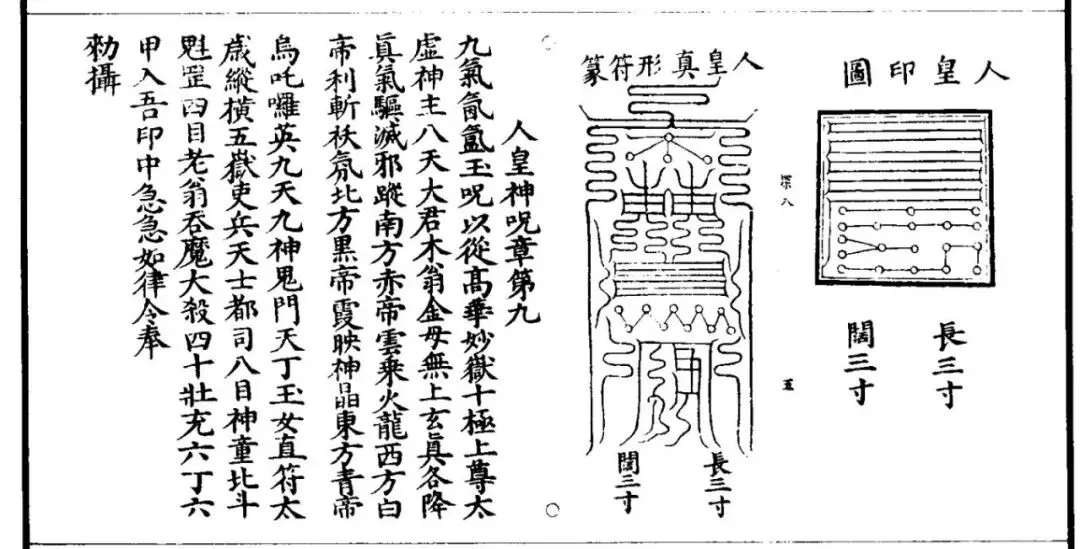 人皇印圖
長三寸
闊三寸
深八
五
人皇真形符篆
長三寸
闊三寸
人皇神呪章第九
九氣氤氳玉呪以從高華妙嶽十極上尊太
虛神主八天大君木翁金母無上玄眞各降
眞氣驅滅邪蹤南方赤帝雲乗火龍西方白
帝利斬祅氛北方黒帝霞映神晶東方青帝
烏吒囉英九天九神鬼門天丁玉女直符太
歲縱橫五嶽吏兵天士都司八目神童北斗
魁罡四目老翁吞魔大殺四十壯充六丁六
甲入吾印中急急如律令奉
勑攝